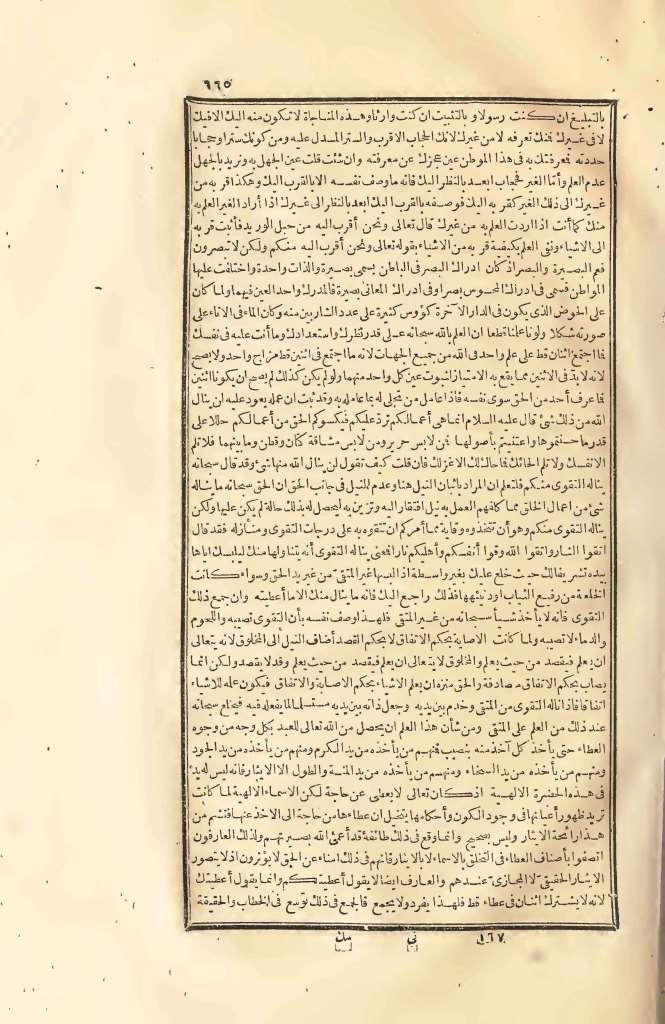 ٦٦٥
بالتبليغ ان كنت رسولا و بالتثبيت ان كنت وارثا وهذه المناجاة لا تكون منه اليك الا فيك
لا فى غيرك فمنك تعرفه لا من غيرك لانك الحجاب الاقرب والستر المسدل عليه ومن كونك ستر او حجابا
حددته فمعرفتك به فى هذا الموطن عين عجزك عن معرفته وان شئت قلت عين الجهل به ونريد بالجهل
عدم العلم وأما الغير فحجاب ابعد بالنظر اليك فانه ما وصف نفسه الا بالقرب اليك وهكذا قربه من
غيرك الى ذلك الغير كقربه اليك فوصفه بالقرب اليك ابعد بالنظر الى غيرك اذا أراد الغير العلم به
منك كما أنت اذا اردت العلم به من غيرك قال تعالى ونحن أقرب اليه من حبل الوريد فأثبت قربه
الى الاشياء ونفى العلم بكيفية قربه من الاشياء بقوله تعالى ونحن أقرب اليه منكم ولكن لا تبصرون
فعم البصيرة والبصر اذ كان ادراك البصر فى الباطن يسمى بصيرة والذات واحدة واختلفت عليها
المواطن فسمى فى ادراك المحسوس بصرا وفى ادراك المعانى بصيرة فالمدرك واحد العين فيهما ولما كان
على الحوض الذى يكون فى الدار الآخرة كؤوس كثيرة على عدد الشاربين منه وكان الماء فى الاناء على
صورته شكلا ولونا علمنا قطعا ان العلم بالله سبحانه على قدر نظرك واستعدادك وما أنت عليه فى نفسك
فما اجتمع اثنان قط على علم واحد فى الله من جميع الجهات لانه ما اجتمع فى اثنين قط مزاج واحد ولا يصح
لانه لا بد فى الاثنين مما يقع به الامتياز لثبوت عين كل واحد منهما ولو لم يكن كذلك لم يصح ان يكونا اثنين
فما عرف أحد من الحق سوى نفسه فاذا عامل من تجلى له بما عامله به وقد ثبت ان عمله يعود عليه لن ينال
الله من ذلك شئ قال عليه السلام انما هى أعمالكم ترد عليكم فيكسوكم الحق من أعمالكم حللا على
قدر ما حسنتموها واعتنيتم بأصولها فمن لابس حرير ومن لابس مشاقة كتان وقطن وما بينهما فلا تلم
الا نفسك ولا تلم الحائك فما حاك لك الا غزلك فان قلت كيف تقول لن ينال الله منها شئ وقد قال سبحانه
يناله التقوى منكم فلتعلم ان المراد باثبات النيل هنا وعدم النيل فى جانب الحق ان الحق سبحانه ما يناله
شئ من اعمال الخلق مما كلفهم العمل به نيل افتقار اليه وتزين به ليحصل له بذلك حالة لم يكن عليها ولكن
يناله التقوى منكم وهو أن تتخذوه وقاية مما أمركم ان تتقوه به على درجات التقوى ومنازله فقد قال
اتقوا النار واتقوا الله وقوا أنفسكم وأهليكم نارا فمعنى يناله التقوى أنه يتناولها منك ليلبسك اياها
بيده تشريفا لك حيث خلع عليك بغير واسطة اذ البسها غير المتقى من غير يد الحق وسواء كانت
الخلعة من رفيع الثياب او دنيئها فذلك راجع اليك فانه ما ينال منك الا ما أعطيته وان جمع ذلك
التقوى فانه لا يأخذ شيأ سبحانه من غير المتقى فلهذا وصف نفسه بأن التقوى تصيبه واللحوم
والدماء لا تصيبه ولما كانت الاصابة بحكم الاتفاق لا بحكم القصد أضاف النيل الى المخلوق لانه يتعالى
ان يعلم فيقصد من حيث يعلم والمخلوق لا يتعالى ان يعلم فيقصد من حيث يعلم وقد لا يقصد ولكن انما
يصاب بحكم الاتفاق مصادفة والحق منزه ان يعلم الاشياء بحكم الاصابة والاتفاق فيكون علمه للاشياء
اتفاقا فاذا ناله التقوى من المتقى وخدم بين يديه وجعل ذاته بين يديه مستسلما لما يفعله فيه فيخلع سبحانه
عند ذلك من العلم على المتقى ومن شأن هذا العلم ان يحصل من الله تعالى للعبد بكل وجه من وجوه
العطاء حتى يأخذ كل آخذ منه بنصيب فمنهم من يأخذه من يد الكرم ومنهم من يأخذه من يد الجود
ومنهم من يأخذه من يد السخاء ومنهم من يأخذه من يد المنة والطول الا الايثار فانه ليس له يد
فى هذه الحضرة الالهية اذ كان تعالى لا يعطى عن حاجة لكن الاسماء الالهية لما كانت
تريد ظهور أعيانها فى وجود الكون وأحكامها يتخيل ان عطاءها من حاجة الى الاخذ عنها فتنسم من
هذا رائحة الايثار وليس بصحيح وانما وقع فى ذلك طائفة قد أعمى الله بصيرتهم ولذلك العارفون
اتصفوا بأصناف العطاء فى التخلق بالاسماء لا بالايثار فانهم فى ذلك امناء عن الحق لا يؤثرون اذ لا يتصور
الايثار الحقيقى لا المجازى عندهم والعارف ايضا لا يقول أعطيتكم وانما يقول أعطيتك
لانه لا يشترك اثنان فى عطاء قط فلهذا يفرد ولا يجمع فالجمع فى ذلك توسع فى الخطاب والحقيقة
١٦٧ نى مك